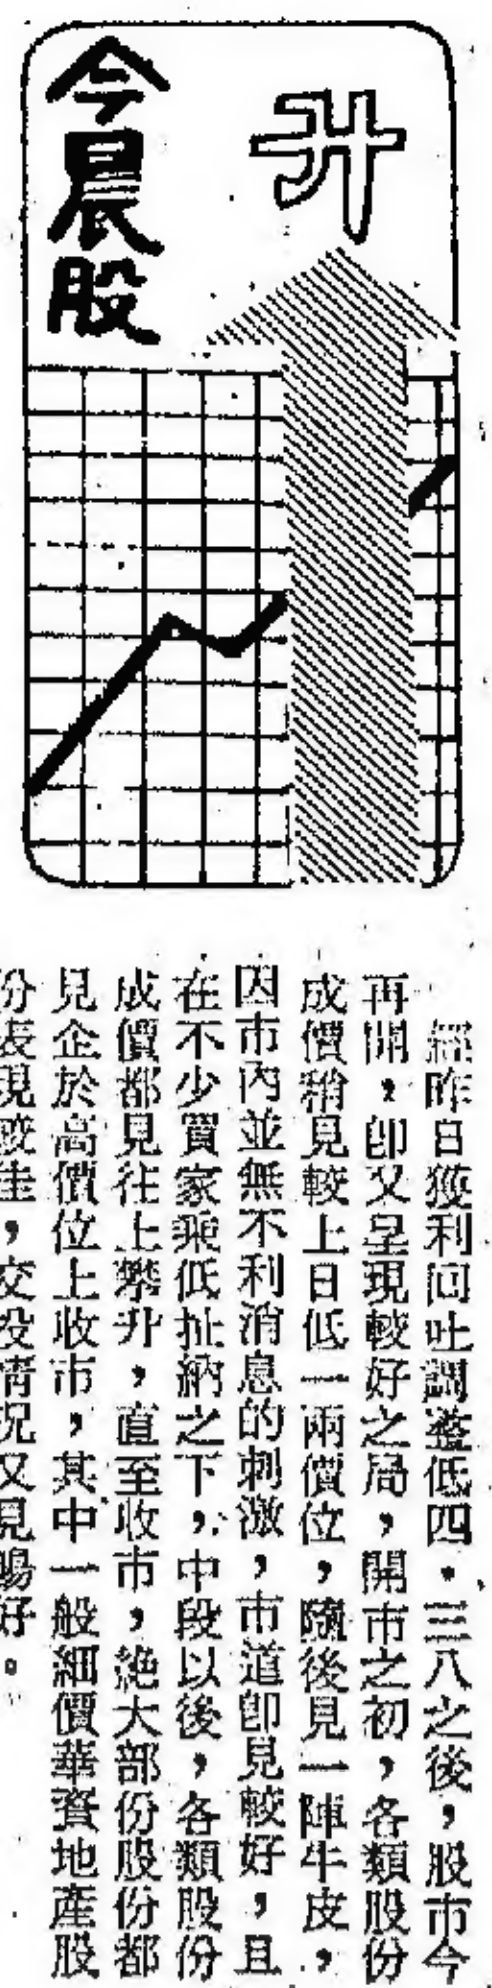 今晨股
升
經昨日獲利回吐調整低四·三八之後，股市今
再開，卽又呈現較好之局，開市之初，各類股份
成價稍見較上日低一兩價位，隨後見一陣牛皮，
因市內並無不利消息的刺激，市道卽見較好，且
在不少買家乘低扯納之下，中段以後，各類股份
成價都見往上攀升，直至收市，絶大部份股份都
見企於高價位上收市，其中一般細價華資地產股
份表現較佳，交投情況又見暢好。